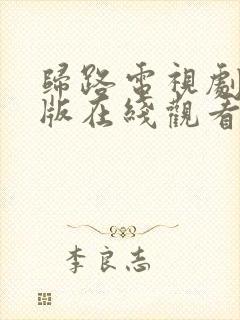 歸路電視劇
版在綫觀看
李良志